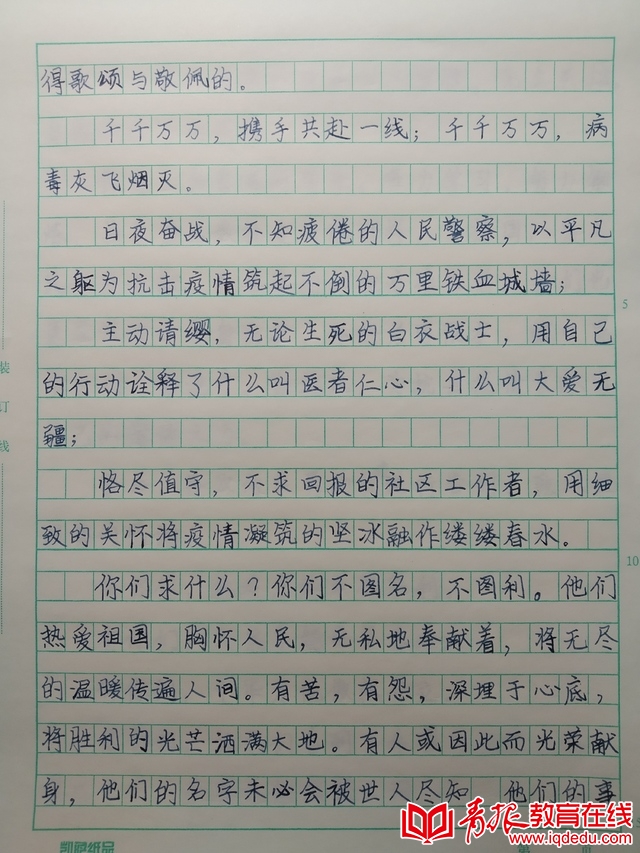 得歌颂与敬佩的。
千千万万，携手共赴一线；千千万万，病
毒灰飞烟灭。
日夜奋战，不知疲倦的人民警察，以平凡
之躯为抗击疫情筑起不倒的万里铁血城墙；
5
主动请缨，无论生死的白衣战士，用自己
的行动诠释了什么叫医者仁心，什么叫大爱无
疆；
恪尽值守，不求回报的社区工作者，用细
致的关怀将疫情凝筑的坚冰融作缕缕春水。
10
你们求什么？你们不图名，不图利。他们
热爱祖国，胸怀人民，无私地奉献着，将无尽
的温暖传遍人间。有苦，有怨，深埋于心底，
将胜利的光芒洒满大地。有人或因此而光荣献
身，他们的名字未必会被世人尽知 他们的事
装
订
线
凯鸥纸品
第
页
青报教育在线
www.iqdedu.com